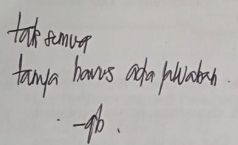 tak semua
tanya harus ada jawaban.
-qb.